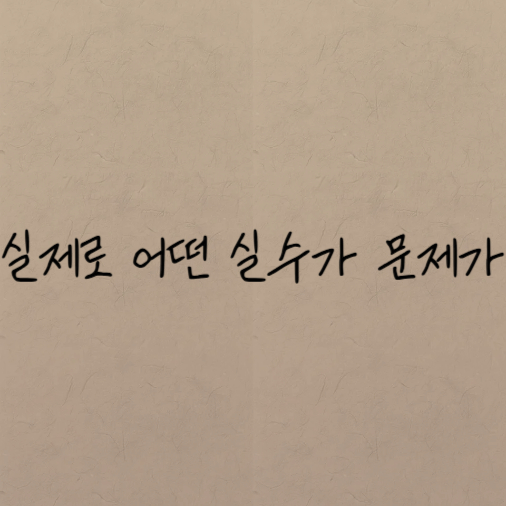 실제로 어떤 실수가 문제가